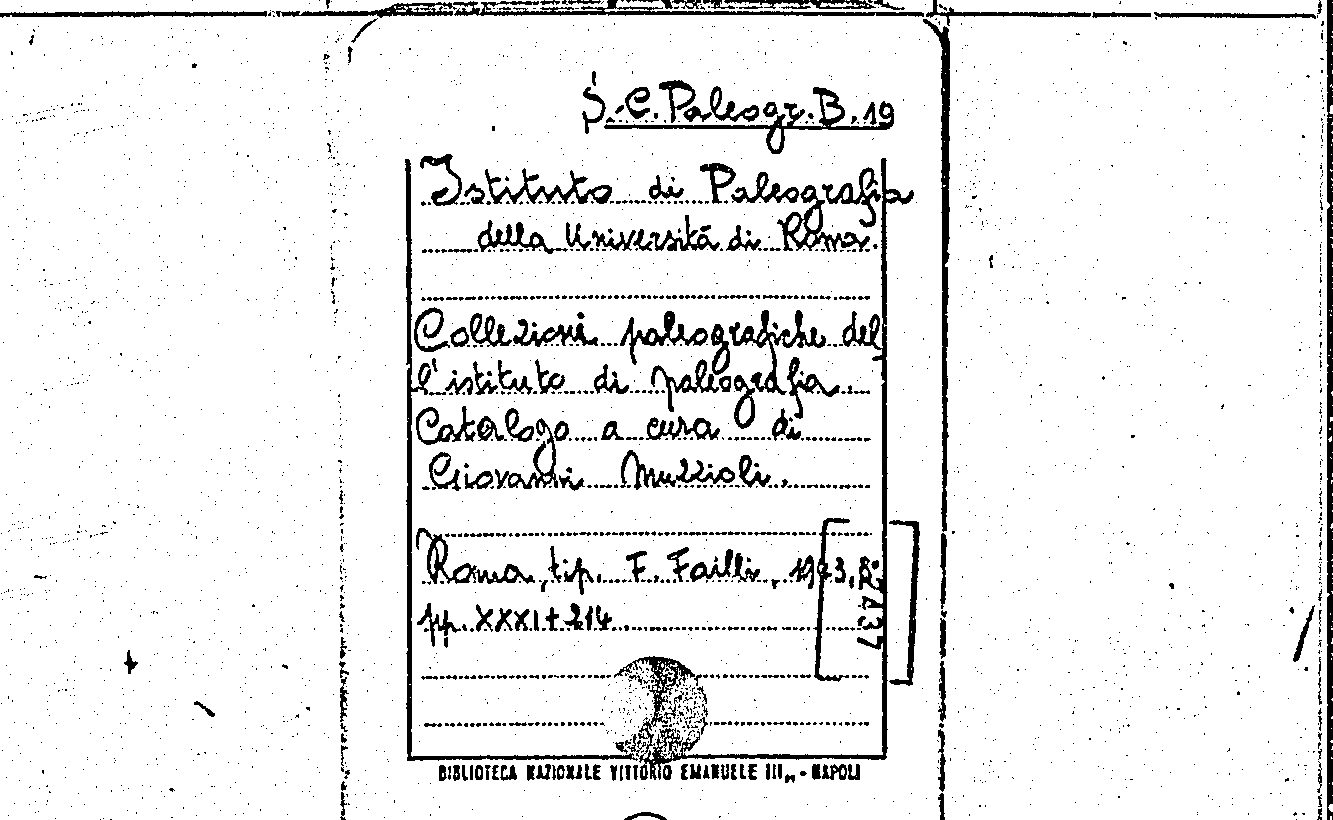 S.C. Paleogr. B. 19
Istituto di Paleografia
della Università di Roma.
Collezioni paleografiche del
l'istituto di paleografia.
Catalogo a cura di
Giovanni Muzzioli.
Roma, tip. F. Failli, 1943, 8º
pp. XXXI + 214.
2437
BIBLIOTECA NAZIONALE VITTORIO EMANUELE III,, - NAPOLI